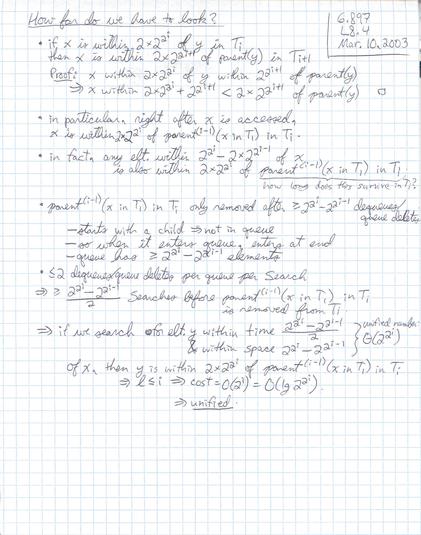 How far do we have to look?
6.897
L8.4
Mar. 10, 2003
• if x is within 2×2^{2^i} of y in T_i
then x is within 2×2^{2^{i+1}} of parent(y) in T_{i+1}
Proof: x within 2×2^{2^i} of y within 2^{2^{i+1}} of parent(y)
⇒ x within 2×2^{2^i} + 2^{2^{i+1}} < 2×2^{2^{i+1}} of parent(y) □
• in particular, right after x is accessed,
x is within 2×2^{2^i} of parent^{(i-1)}(x in T_1) in T_i.
• in fact, any elt. within 2^{2^i} - 2×2^{2^{i-1}} of x
is also within 2×2^{2^i} of parent^{(i-1)}(x in T_1) in T_i.
how long does this survive in T_i?
• parent^{(i-1)}(x in T_1) in T_i only removed after ≥ 2^{2^i} - 2^{2^{i-1}} dequeues/
queue deletes
- starts with a child ⇒ not in queue
- so when it enters queue, enters at end
- queue has ≥ 2^{2^i} - 2^{2^{i-1}} elements
• ≤2 dequeues/queue deletes per queue per Search
⇒ ≥ (2^{2^i} - 2^{2^{i-1}})/2 Searches before parent^{(i-1)}(x in T_1) in T_i
is removed from T_i
⇒ if we search for elt. y within time (2^{2^i} - 2^{2^{i-1}})/2 } unified number
& within space 2^{2^i} - 2^{2^{i-1}} } Θ(2^{2^i})
of x, then y is within 2×2^{2^i} of parent^{(i-1)}(x in T_1) in T_i
⇒ l ≤ i ⇒ cost = O(2^i) = O(lg 2^{2^i})
⇒ unified.